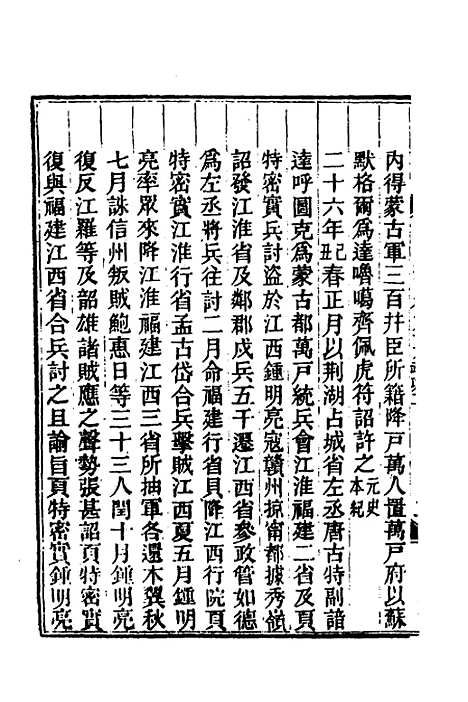 內得蒙古軍三百幷臣所籍降戸萬人置萬戸府以蘇
默格爾爲達嚕噶齊佩虎符詔許之元史本紀
二十六年己丑春正月以荆湖占城省左丞唐古特副諳
達呼圖克爲蒙古都萬戸統兵會江淮福建二省及頁
特密實兵討盜於江西鍾明亮寇贛州掠甯都據秀嶺
詔發江淮省及鄰郡戍兵五千遷江西省參政管如德
爲左丞將兵往討二月命福建行省貝降江西行院頁
特密實江淮行省孟古岱合兵擊賊江西夏五月鍾明
亮率眾來降江淮福建江西三省所抽軍各還木翼秋
七月誅信州叛賊鮑惠日等三十三人閏十月鍾明亮
復反江羅等及韶雄諸賊應之聲勢張甚詔頁特密實
復與福建江西省合兵討之且諭旨頁特密實鍾明亮